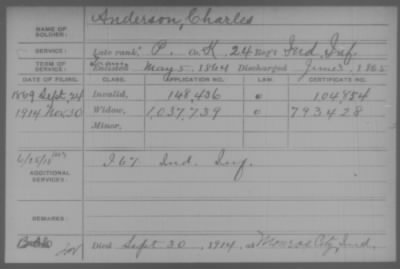 NAME OF SOLDIER: Anderson, Charles
SERVICE: Late rank, P. Co. K, 24 Reg't Ind. Inf.
TERM OF SERVICE: Enlisted May 5, 1864 Discharged June 3, 1865
DATE OF FILING. CLASS. APPLICATION NO. LAW. CERTIFICATE NO.
1869 Sept. 24 Invalid, 148,436 104,854
1914 Nov. 30 Widow, 1,037,739 793428
Minor,
ADDITIONAL SERVICES: I 67 Ind. Inf.
REMARKS:
Died Sept 30, 1914, at Monroe City, Ind.